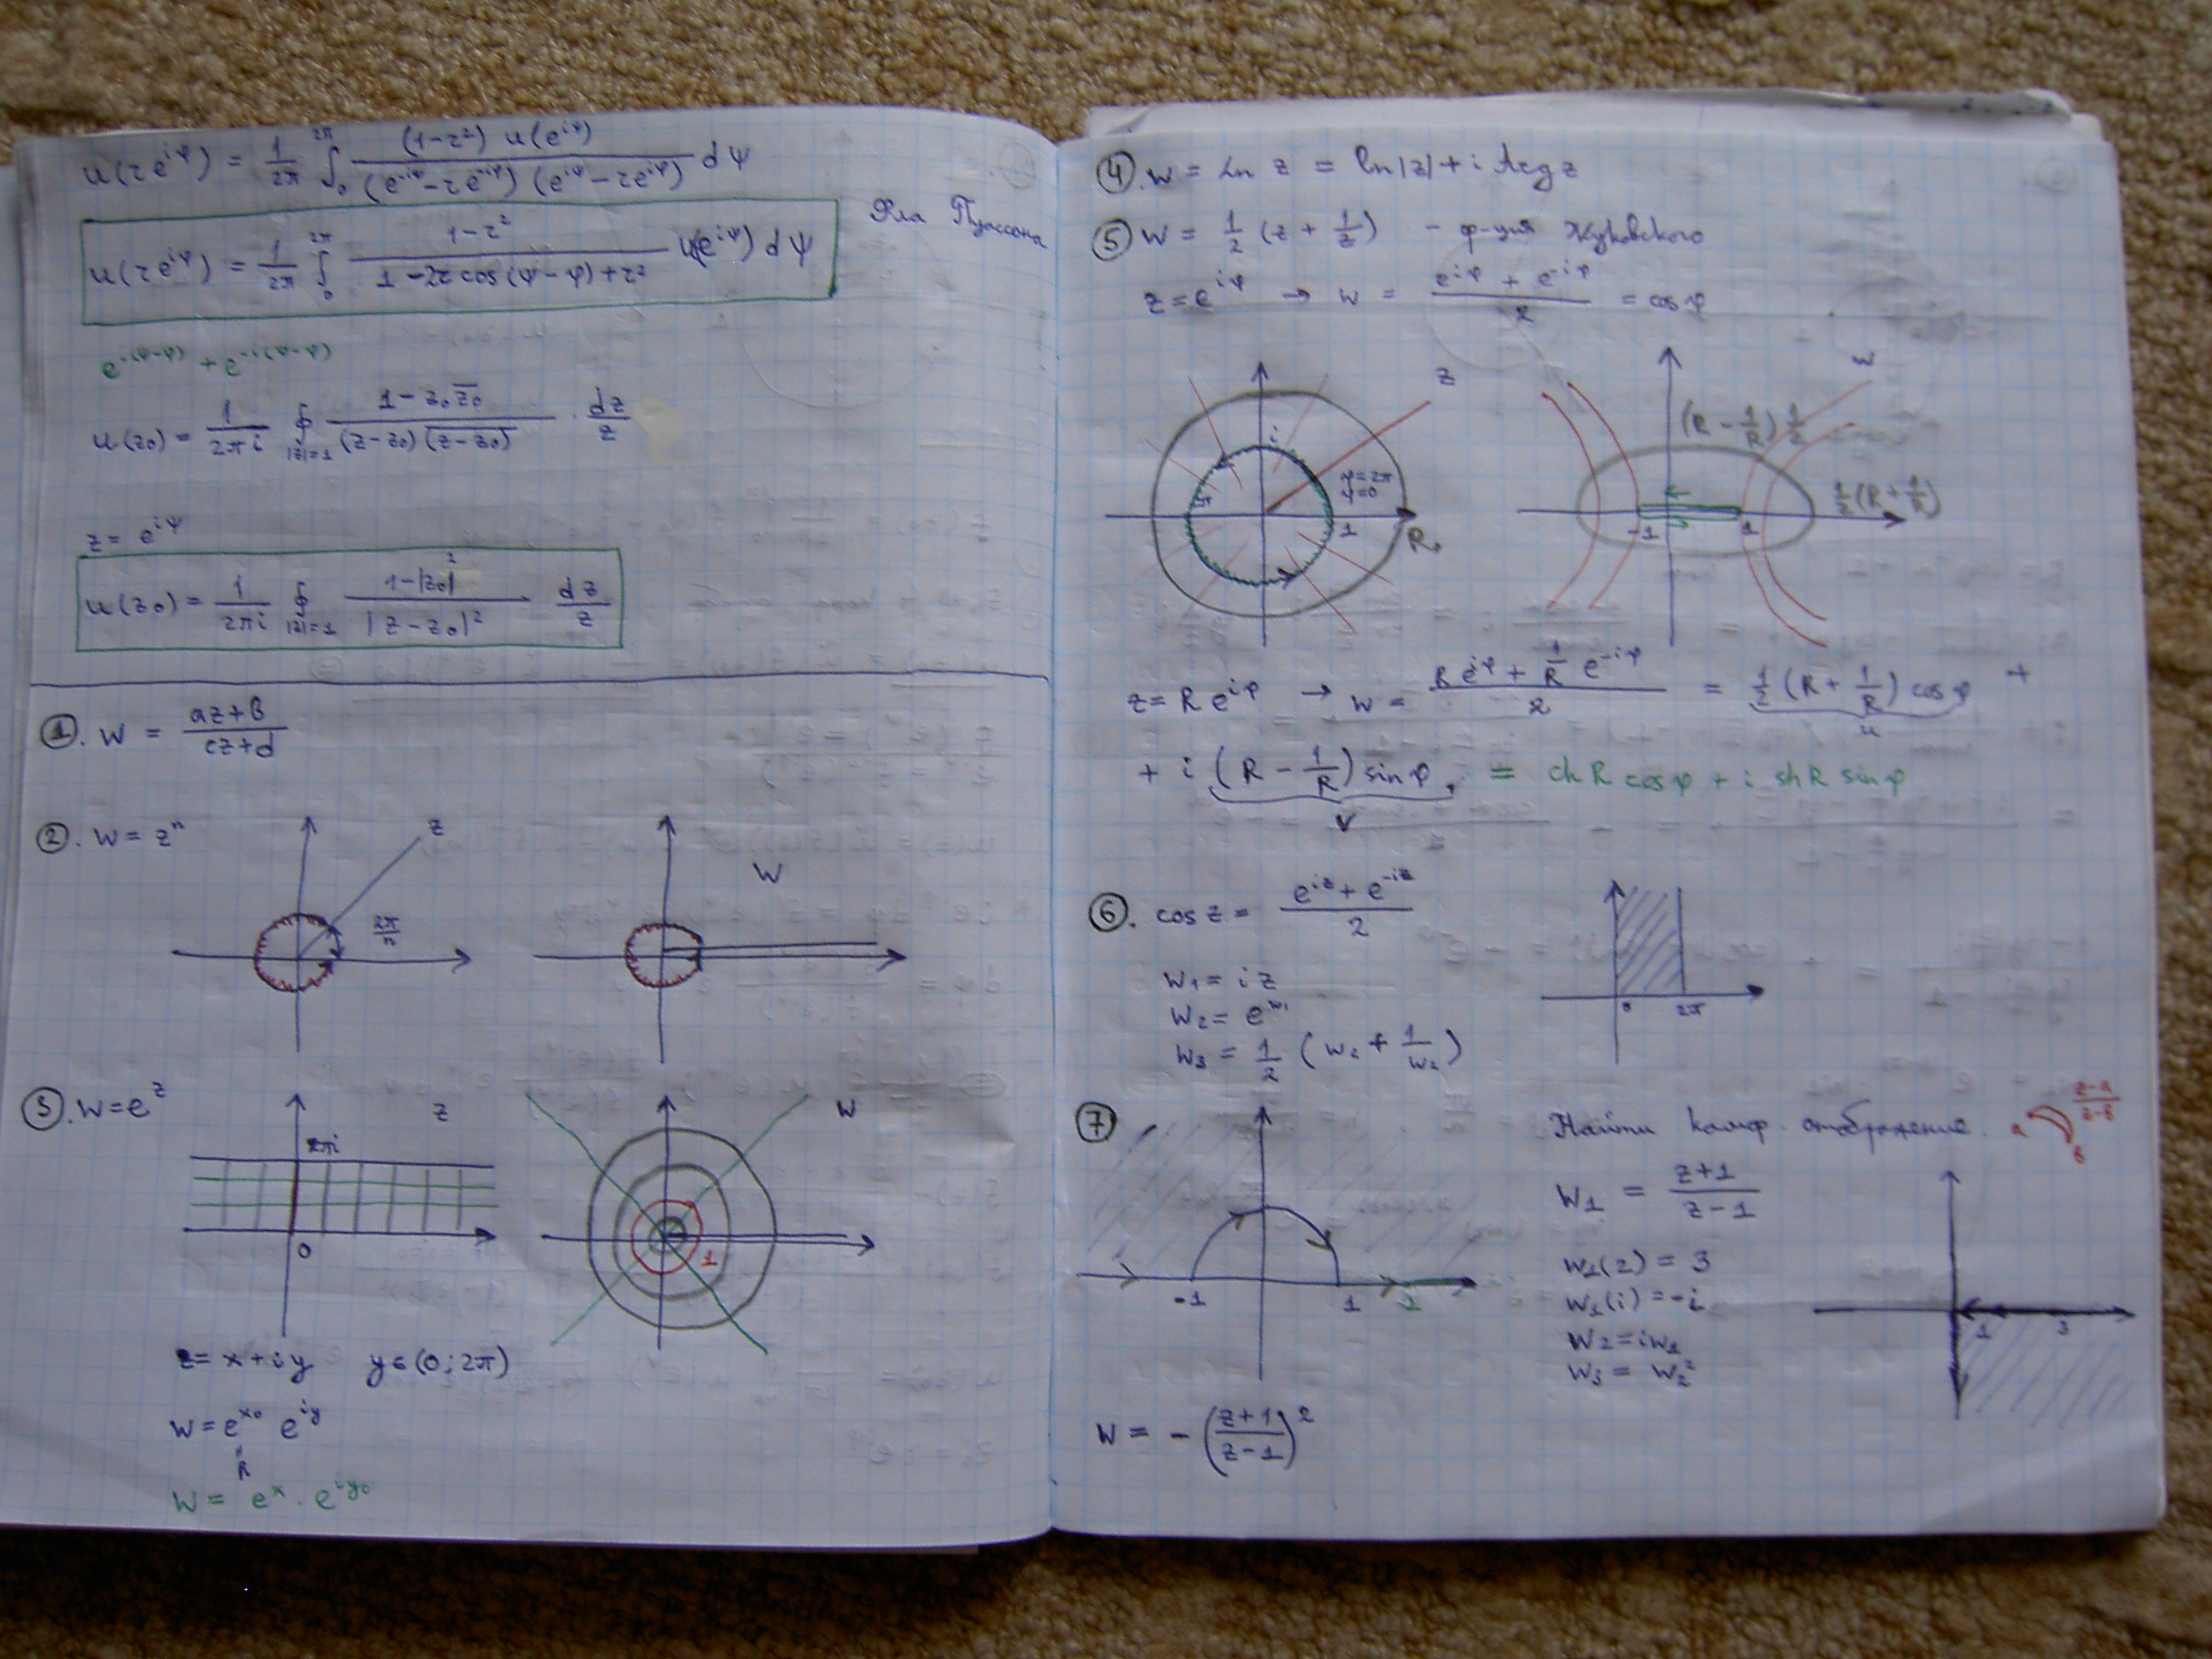 u(re^{iφ}) = \frac{1}{2π} ∫_0^{2π} \frac{(1-r²) u(e^{iψ})}{(e^{-iψ} - re^{-iφ})(e^{iψ} - re^{iφ})} dψ
u(re^{iφ}) = \frac{1}{2π} ∫_0^{2π} \frac{1-r²}{1-2r cos(ψ-φ)+r²} u(e^{iψ}) dψ
Ф-ла Пуассона
e^{i(ψ-φ)} + e^{-i(ψ-φ)}
u(z₀) = \frac{1}{2πi} ∮_{|z|=1} \frac{1-z₀\overline{z₀}}{(z-z₀)\overline{(z-z₀)}} · \frac{dz}{z}
z = e^{iψ}
u(z₀) = \frac{1}{2πi} ∮_{|z|=1} \frac{1-|z₀|²}{|z-z₀|²} \frac{dz}{z}
①. w = \frac{az+b}{cz+d}
②. w = zⁿ
z
\frac{2π}{n}
w
③. w = e^z
z
2πi
0
w
1
z = x+iy y∈(0;2π)
w = e^{x₀} e^{iy}
"
R
w = e^x · e^{iy₀}
④. w = Ln z = ln|z| + i Arg z
⑤ w = \frac{1}{2} (z + \frac{1}{z}) - ф-ция Жуковского
z = e^{iφ} → w = \frac{e^{iφ} + e^{-iφ}}{2} = cos φ
z
i
φ=2π
φ=0
1
R
w
(R - \frac{1}{R}) \frac{1}{2}
\frac{1}{2}(R + \frac{1}{R})
-1
1
z = R e^{iφ} → w = \frac{R e^{iφ} + \frac{1}{R} e^{-iφ}}{2} = \frac{1}{2} (R + \frac{1}{R}) cos φ +
u
+ i (R - \frac{1}{R}) sin φ = ch R cos φ + i sh R sin φ
v
⑥. cos z = \frac{e^{iz} + e^{-iz}}{2}
w₁ = iz
w₂ = e^{w₁}
w₃ = \frac{1}{2} (w₂ + \frac{1}{w₂})
0
2π
⑦
Найти конф. отображение
a
b
\frac{z-a}{z-b}
-1
1
2
w₁ = \frac{z+1}{z-1}
w₁(2) = 3
w₁(i) = -i
w₂ = iw₁
w₃ = w₂²
1
3
w = -(\frac{z+1}{z-1})²